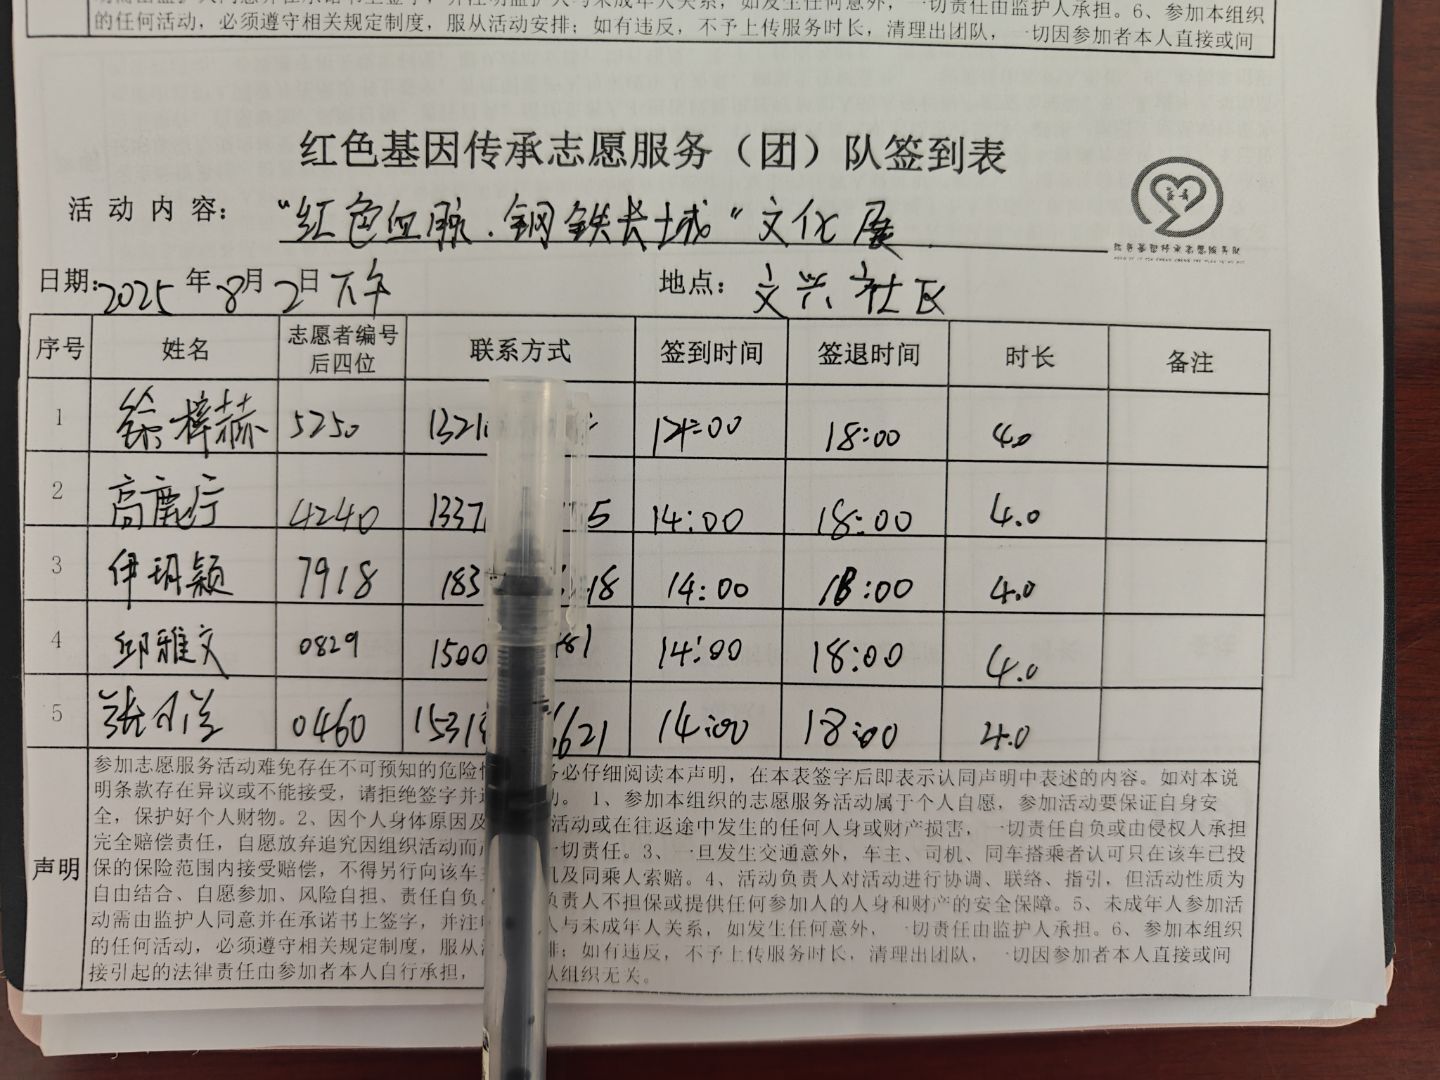 的任何活动，必须遵守相关规定制度，服从活动安排；如有违反，不予上传服务时长，清理出团队，一切因参加者本人直接或间
红色基因传承志愿服务（团）队签到表
活动内容： "红色血脉．钢铁长城"文化展
红色基因传承志愿服务队
日期：2025年8月2日下午 地点：文兴社区
序号 姓名 志愿者编号后四位 联系方式 签到时间 签退时间 时长 备注
1 徐梓赫 5250 1321 14:00 18:00 4.0
2 高鹿宁 4240 1337 5 14:00 18:00 4.0
3 伊玥颖 7918 183 18 14:00 18:00 4.0
4 邱雅文 0829 1500 81 14:00 18:00 4.0
5 张 0460 1531 6621 14:00 18:00 4.0
声明
参加志愿服务活动难免存在不可预知的危险 务必仔细阅读本声明，在本表签字后即表示认同声明中表述的内容。如对本说
明条款存在异议或不能接受，请拒绝签字并 动。 1、参加本组织的志愿服务活动属于个人自愿，参加活动要保证自身安
全，保护好个人财物。2、因个人身体原因及 活动或在往返途中发生的任何人身或财产损害，一切责任自负或由侵权人承担
完全赔偿责任，自愿放弃追究因组织活动而 一切责任。3、一旦发生交通意外，车主、司机、同车搭乘者认可只在该车已投
保的保险范围内接受赔偿，不得另行向该车 机及同乘人索赔。4、活动负责人对活动进行协调、联络、指引，但活动性质为
自由结合、自愿参加、风险自担、责任自负。 负责人不担保或提供任何参加人的人身和财产的安全保障。5、未成年人参加活
动需由监护人同意并在承诺书上签字，并注 人与未成年人关系，如发生任何意外，一切责任由监护人承担。6、参加本组织
的任何活动，必须遵守相关规定制度，服从 排；如有违反，不予上传服务时长，清理出团队，一切因参加者本人直接或间
接引起的法律责任由参加者本人自行承担， 人组织无关。